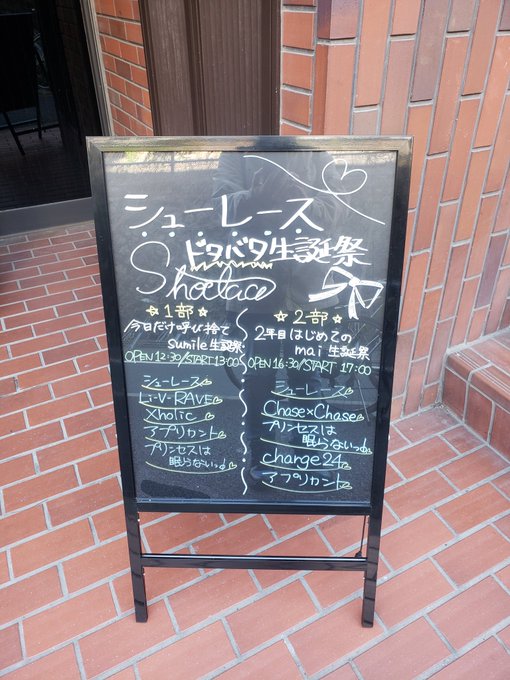 シューレース
ドタバタ生誕祭
Shoelace
☆1部☆
今日だけ呼び捨て
sumile生誕祭
OPEN 12:30/START 13:00
シューレース
Li-V-RAVE
Xholic
アプリカント
プリンセスは
眠らないっ♂
☆2部☆
2年目はじめての
mai生誕祭
OPEN 16:30/START 17:00
シューレース
Chase×Chase
プリンセスは
眠らないっ♂
change24
アプリカント